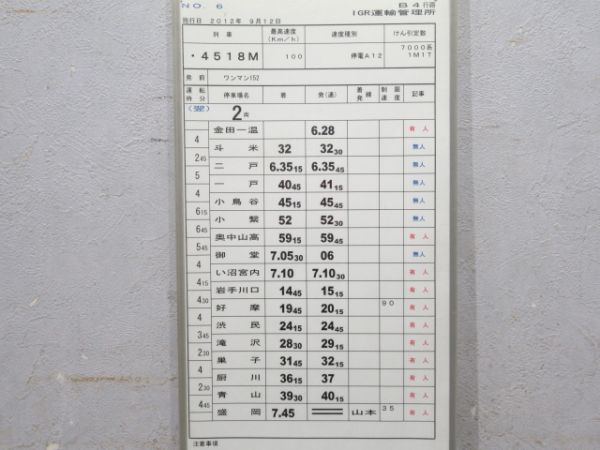 NO. 6
B4行路
施行日 2012年 9月12日
IGR運輸管理所
列車 最高速度(Km/h) 速度種別 けん引定数
・4518M 100 停電A12 7000系 1M1T
発前 ワンマン152
運転時分 停車場名 着 発(通) 着発線 制限速度 記事
(翌) 2両
金田一温 6.28 有人
4
斗米 32 32 30 無人
2 45
二戸 6.35 15 6.35 45 有人
5
一戸 40 45 41 15 無人
4
小鳥谷 45 15 45 45 無人
6 15
小繋 52 52 30 無人
6 45
奥中山高 59 15 59 45 有人
5 45
御堂 7.05 30 06 無人
4
い沼宮内 7.10 7.10 30 有人
4 15
岩手川口 14 45 15 15 有人
4 30
好摩 19 45 20 15 90 有人
4
渋民 24 15 24 45 有人
3 45
滝沢 28 30 29 15 有人
2 30
巣子 31 45 32 15 有人
4
厨川 36 15 37 有人
2 30
青山 39 30 40 15 有人
4 45
盛岡 7.45 山本 35 有人
注意事項